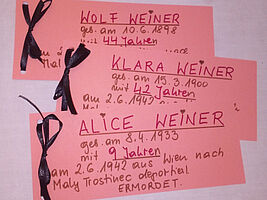 WOLF WEINER
geb. am 10.6.1898
mit 44 Jahren
KLARA WEINER
geb. am 15.3.1900
mit 42 Jahren
am 2.6.1942
Maly
ALICE WEINER
geb. am 8.4.1933
mit 9 Jahren
am 2.6.1942 aus Wien nach
Maly Trostinec deportiert.
ERMORDET.